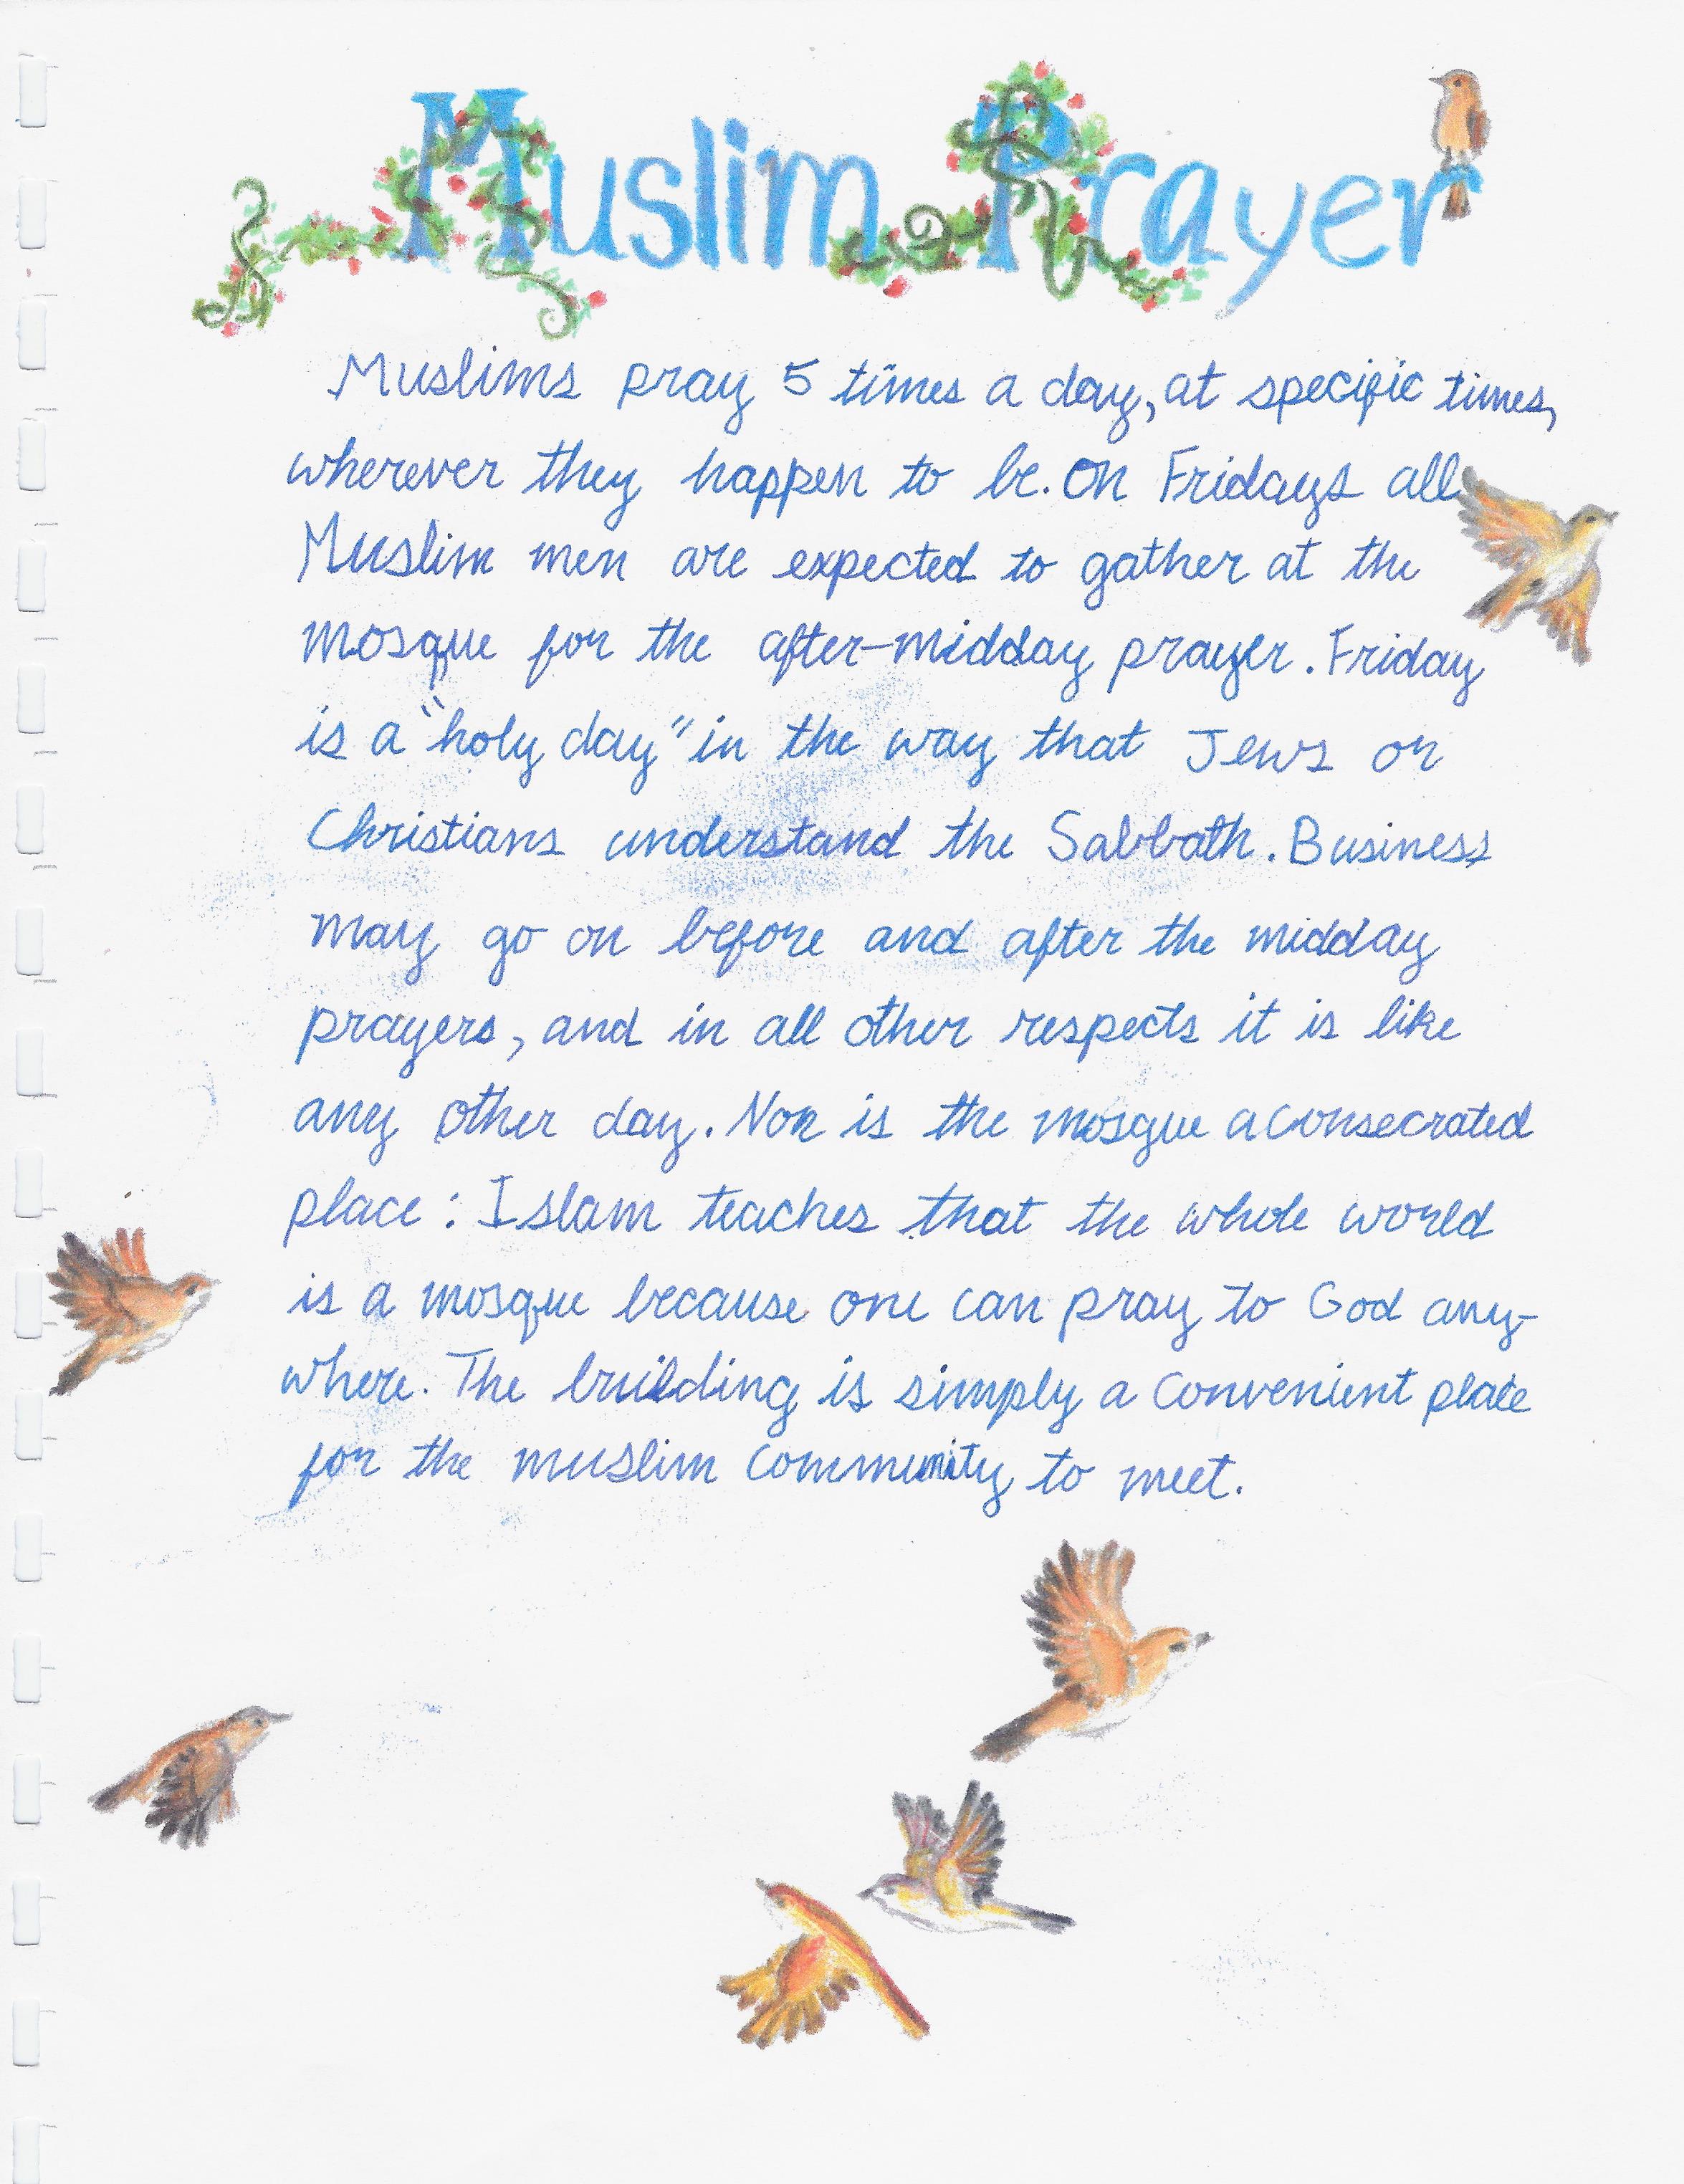 Muslim Prayer
Muslims pray 5 times a day, at specific times,
wherever they happen to be. On Fridays all
Muslim men are expected to gather at the
mosque for the after-midday prayer. Friday
is a "holy day" in the way that Jews or
Christians understand the Sabbath. Business
may go on before and after the midday
prayers, and in all other respects it is like
any other day. Nor is the mosque a consecrated
place: Islam teaches that the whole world
is a mosque because one can pray to God any-
where. The building is simply a convenient place
for the muslim community to meet.